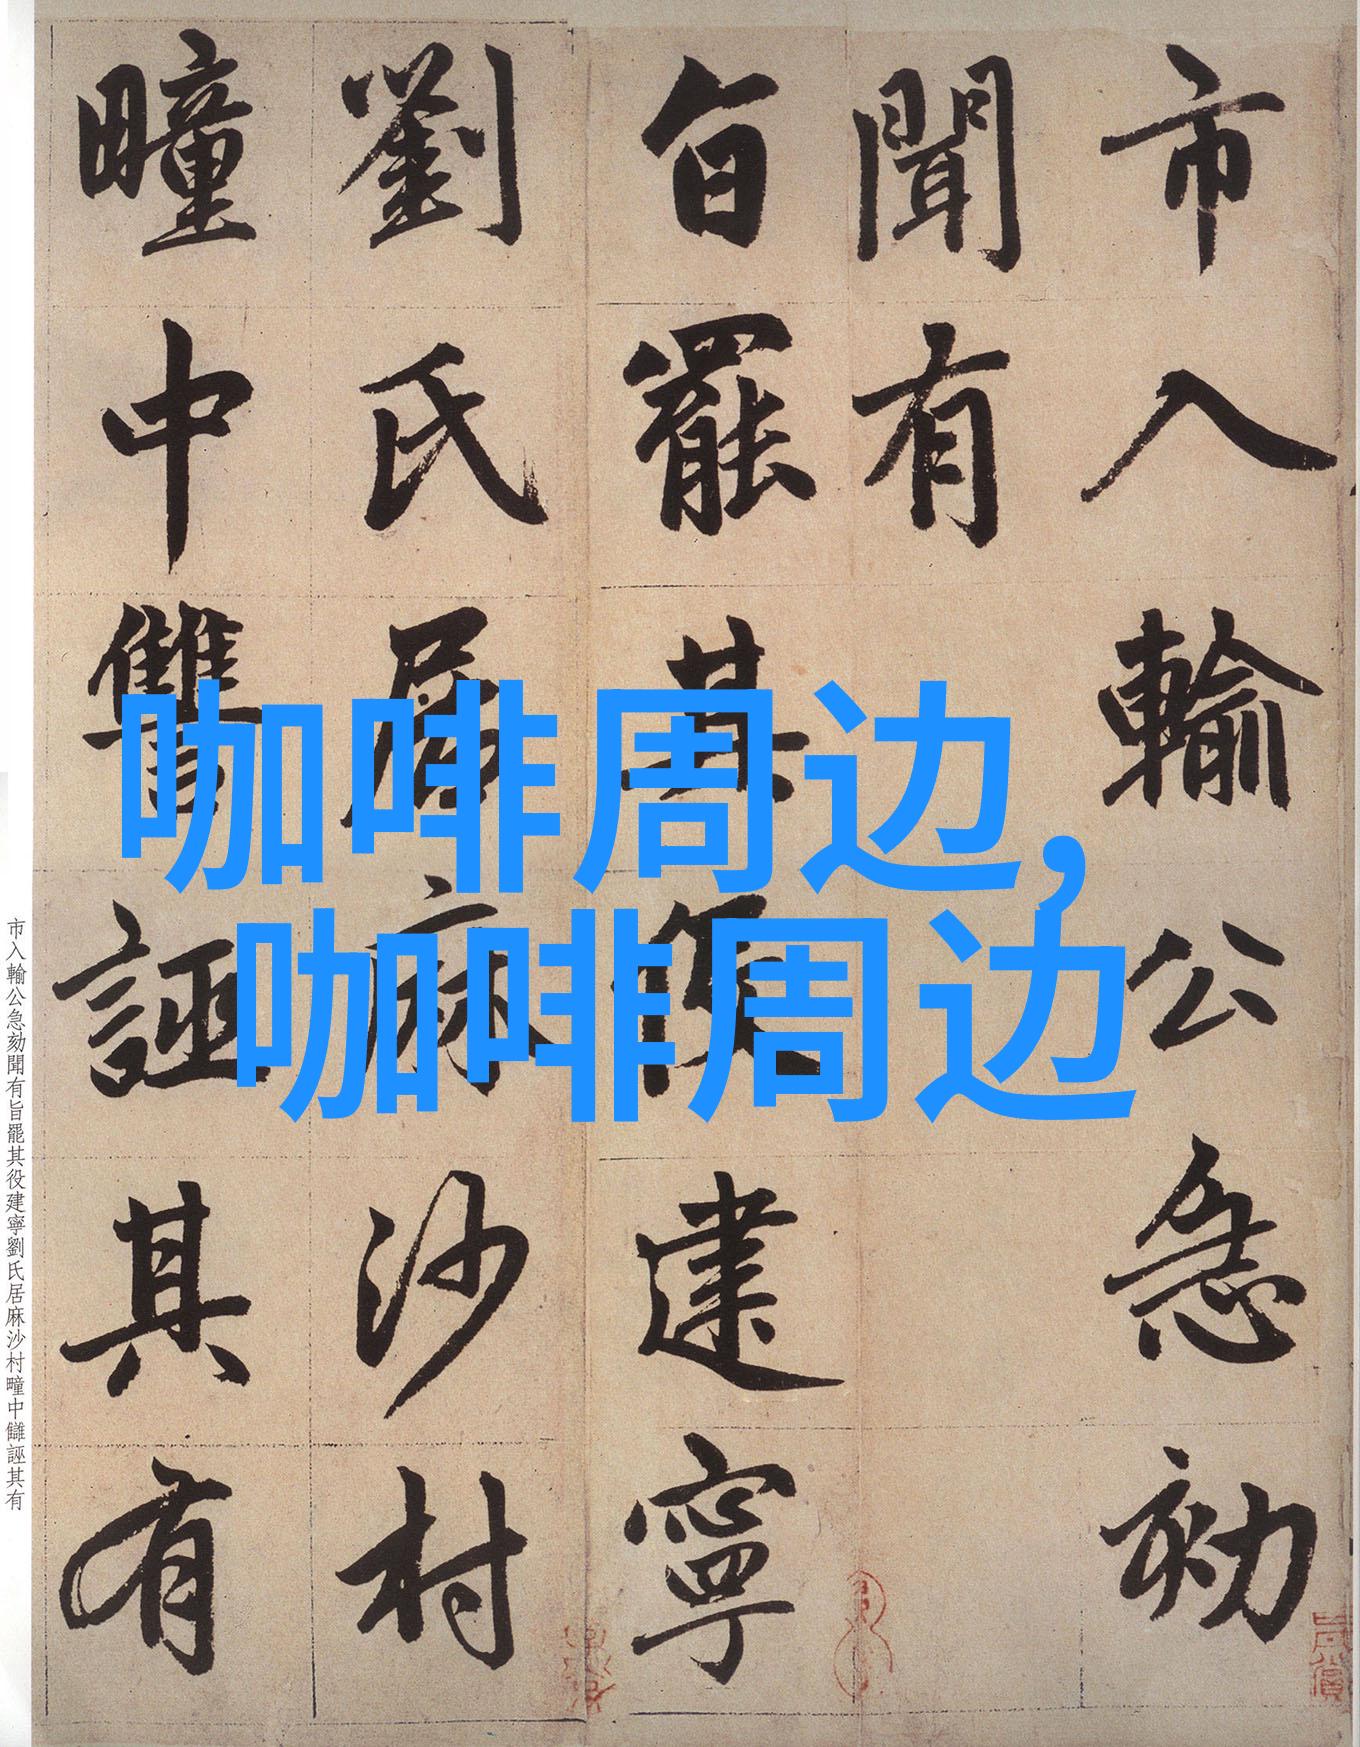 市入輸公急劾
聞有
旨罷其役建寧
劉氏居麻沙村
疃中讐誣其有
咖啡周边,
咖啡周边
市入輸公急劾聞有旨罷其役建寧劉氏居麻沙村疃中讎誣其有